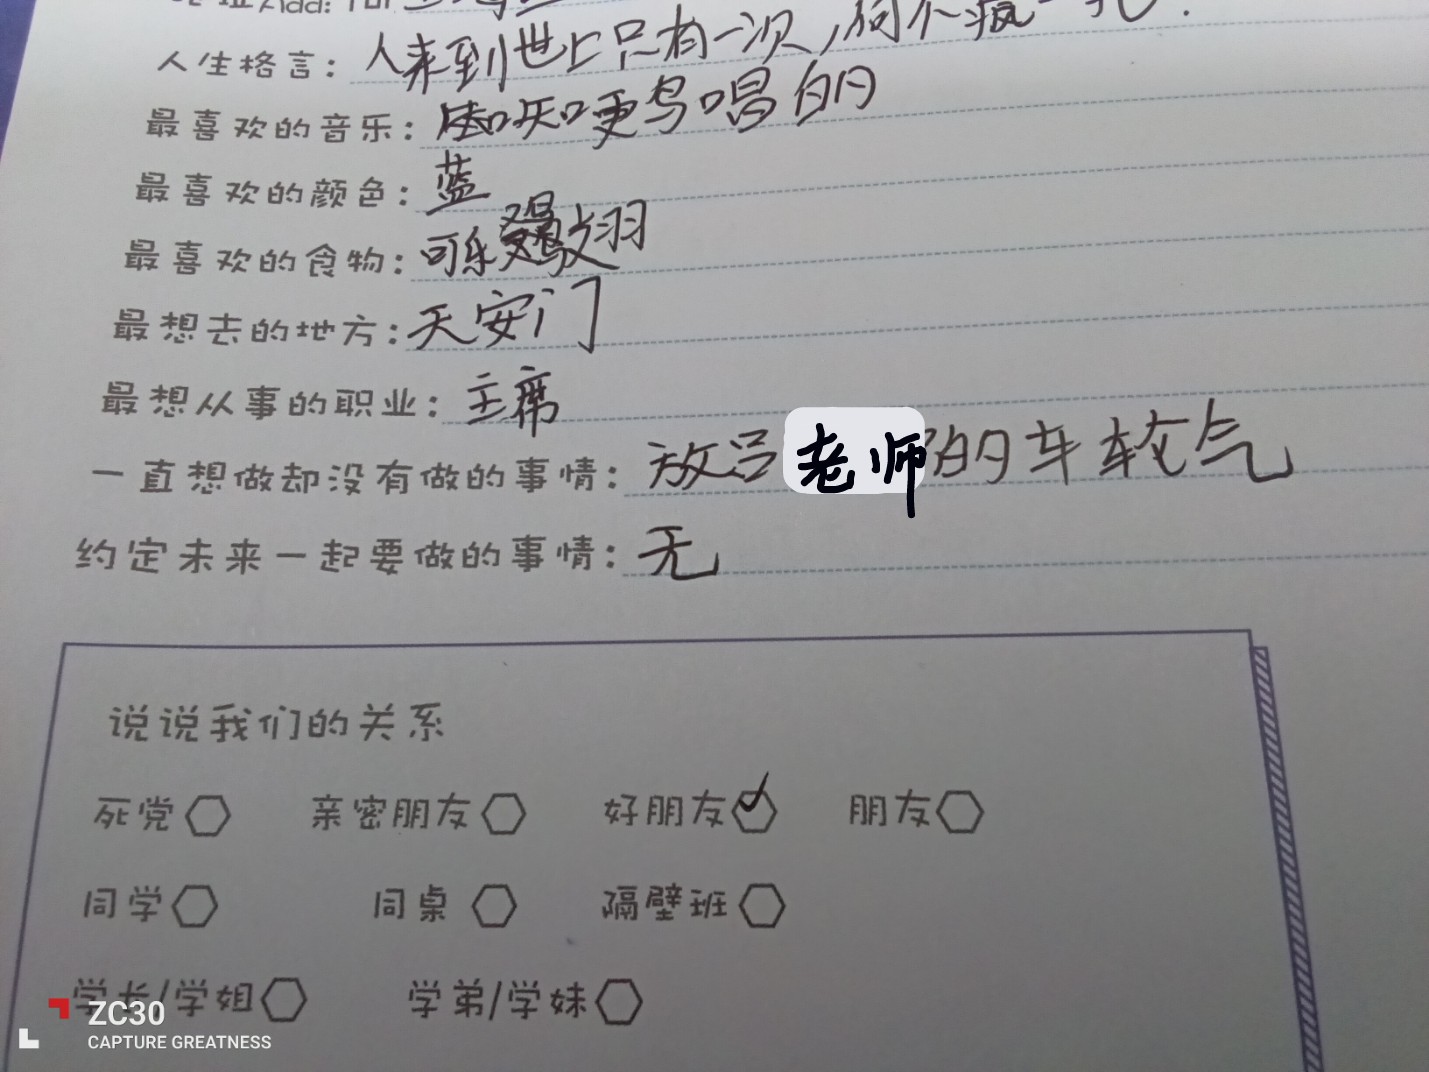 Add:
人生格言：人来到世上只有一次，何不疯一把！
最喜欢的音乐：唱的
最喜欢的颜色：蓝
最喜欢的食物：可乐鸡翅
最想去的地方：天安门
最想从事的职业：主席
一直想做却没有做的事情：放吕老师的车轮气
约定未来一起要做的事情：无
说说我们的关系
死党 亲密朋友 好朋友 朋友
同学 同桌 隔壁班
学长/学姐 学弟/学妹
ZC30
CAPTURE GREATNESS